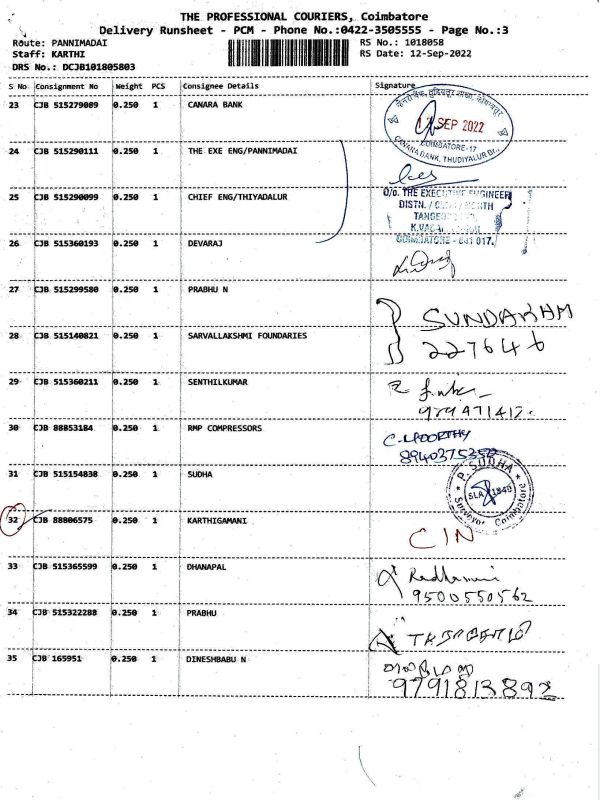 THE PROFESSIONAL COURIERS, Coimbatore
Delivery Runsheet - PCM - Phone No.:0422-3505555 - Page No.:3
Route: PANNIMADAI
RS No.: 1018058
Staff: KARTHI
RS Date: 12-Sep-2022
DRS No.: DCJB101805803
S No Consignment No Weight PCS Consignee Details Signature
23 CJB 515279089 0.250 1 CANARA BANK
SEP 2022
COIMBATORE-17
CANARA BANK, THUDIYALUR Br.,
24 CJB 515290111 0.250 1 THE EXE ENG/PANNIMADAI
25 CJB 515290099 0.250 1 CHIEF ENG/THIYADALUR
O/o. THE EXECUTIVE ENGINEER
DISTN. / NORTH
COIMBATORE - 641 017.
26 CJB 515360193 0.250 1 DEVARAJ
27 CJB 515299580 0.250 1 PRABHU N
SUNDARAM
227646
28 CJB 515140821 0.250 1 SARVALLAKSHMI FOUNDARIES
29 CJB 515360211 0.250 1 SENTHILKUMAR
30 CJB 88853184 0.250 1 RMP COMPRESSORS
C. MOORTHY
8940375352
31 CJB 515154838 0.250 1 SUDHA
P. SUDHA
Surveyor Coimbatore
32 CJB 88806575 0.250 1 KARTHIGAMANI
CIN
33 CJB 515365599 0.250 1 DHANAPAL
9500550562
34 CJB 515322288 0.250 1 PRABHU
35 CJB 165951 0.250 1 DINESHBABU N
9791813892